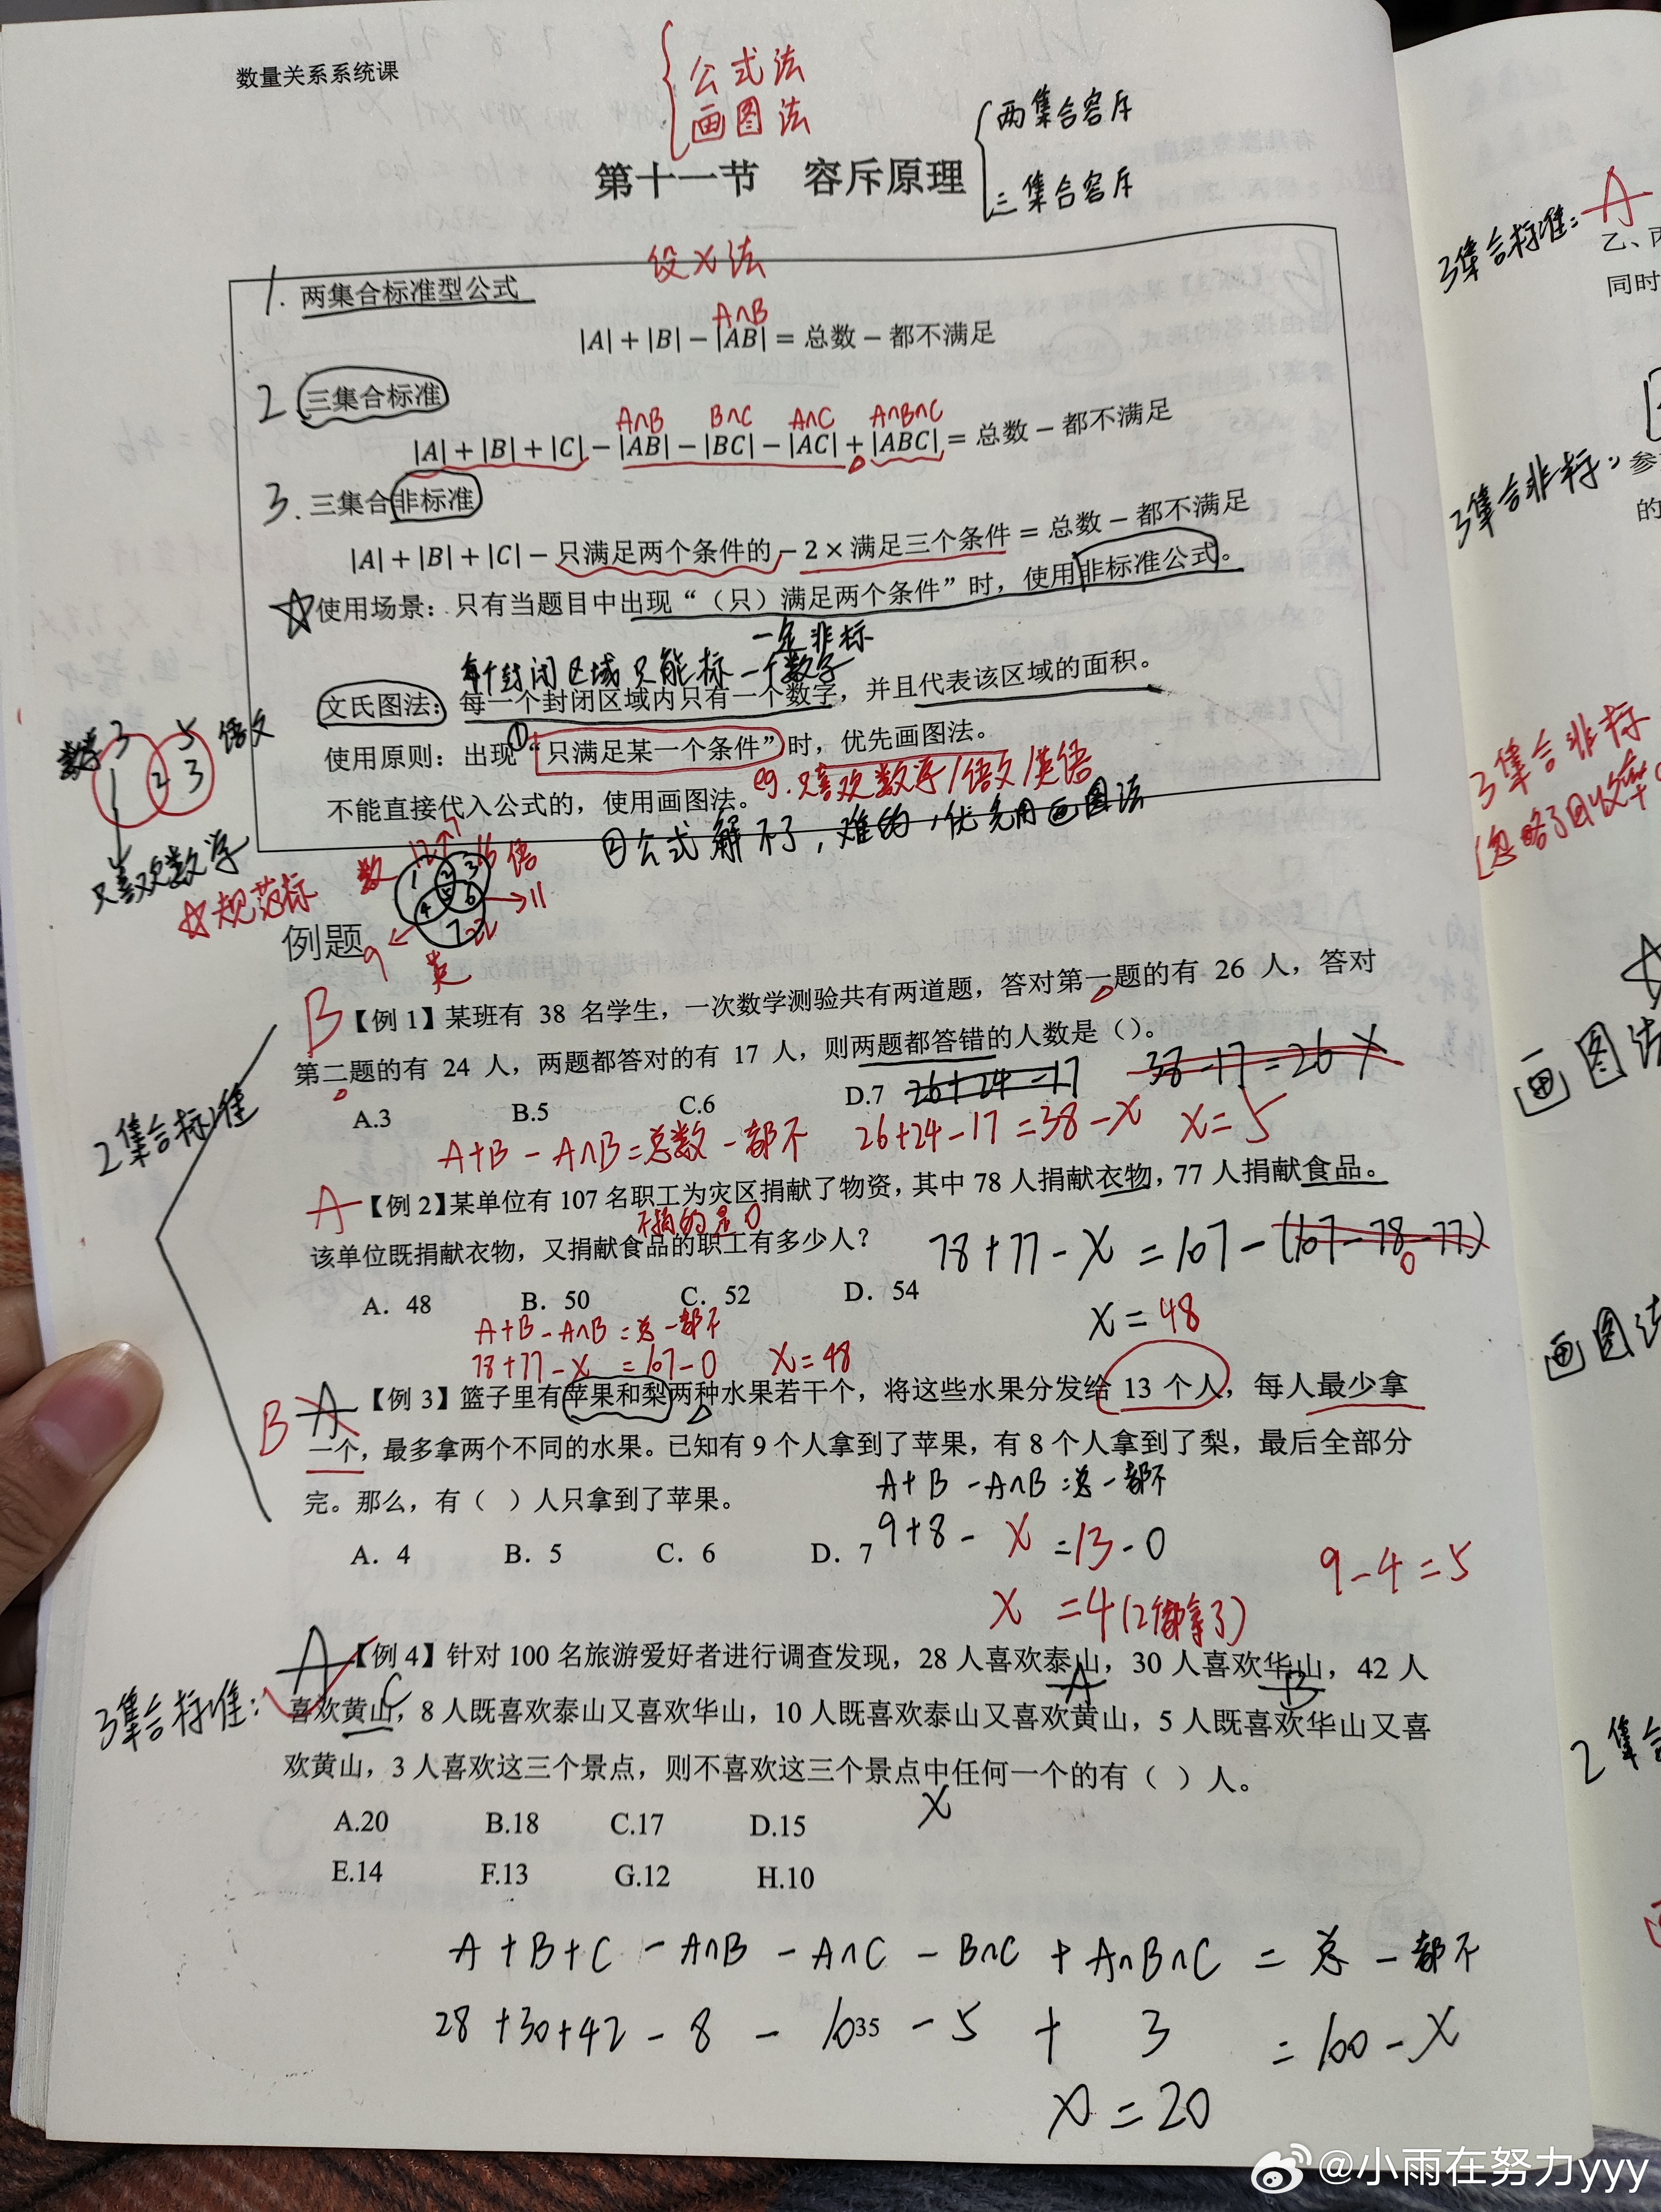 数量关系系统课
公式法
画图法
两集合容斥
第十一节 容斥原理
三集合容斥
设X法
1. 两集合标准型公式
A∩B
|A|+|B|−|AB|=总数−都不满足
2 三集合标准
A∩B B∩C A∩C A∩B∩C
|A|+|B|+|C|−|AB|−|BC|−|AC|+|ABC|=总数−都不满足
3. 三集合非标准
|A|+|B|+|C|−只满足两个条件的−2×满足三个条件=总数−都不满足
☆使用场景：只有当题目中出现“（只）满足两个条件”时，使用非标准公式。
一定非标
每个封闭区域只能标一个数字
文氏图法：每一个封闭区域内只有一个数字，并且代表该区域的面积。
数学 3 5 语文
1 2 3
只喜欢数学
使用原则：出现①“只满足某一个条件”时，优先画图法。
eg.只喜欢数学/语文/英语
不能直接代入公式的，使用画图法。
②公式解不了，难的，优先用画图法
☆规范标
数 语
1 2 3
4 5 6 →11
7 22
9 英
例题
2集合标准
B【例 1】某班有 38 名学生，一次数学测验共有两道题，答对第一题的有 26 人，答对
第二题的有 24 人，两题都答对的有 17 人，则两题都答错的人数是（）。
A.3 B.5 C.6 D.7 26+24−17 38−17=26 X
A+B−A∩B=总数−都不 26+24−17=38−X X=5
A【例 2】某单位有 107 名职工为灾区捐献了物资，其中 78 人捐献衣物，77 人捐献食品。
不捐的是0
该单位既捐献衣物，又捐献食品的职工有多少人？
78+77−X=107−(107−78−77) 0
A．48 B．50 C．52 D．54
X=48
A+B−A∩B=总−都不
78+77−X=107−0 X=48
B A【例 3】篮子里有苹果和梨两种水果若干个，将这些水果分发给 13 个人，每人最少拿
一个，最多拿两个不同的水果。已知有 9 个人拿到了苹果，有 8 个人拿到了梨，最后全部分
完。那么，有（ ）人只拿到了苹果。
A+B−A∩B=总−都不
A．4 B．5 C．6 D．7
9+8−X=13−0
X=4(2个都拿了)
9−4=5
3集合标准：
A【例 4】针对 100 名旅游爱好者进行调查发现，28 人喜欢泰山，30 人喜欢华山，42 人
A B
C
喜欢黄山，8 人既喜欢泰山又喜欢华山，10 人既喜欢泰山又喜欢黄山，5 人既喜欢华山又喜
欢黄山，3 人喜欢这三个景点，则不喜欢这三个景点中任何一个的有（ ）人。
X
A.20 B.18 C.17 D.15
E.14 F.13 G.12 H.10
A+B+C−A∩B−A∩C−B∩C+A∩B∩C=总−都不
28+30+42−8−10−5+3=100−X
35
X=20
3集合标准：A
乙、丙
同时
3集合非标：参
的
3集合非标
(忽略了回收率
画图法
画图法
2集合
@小雨在努力yyy